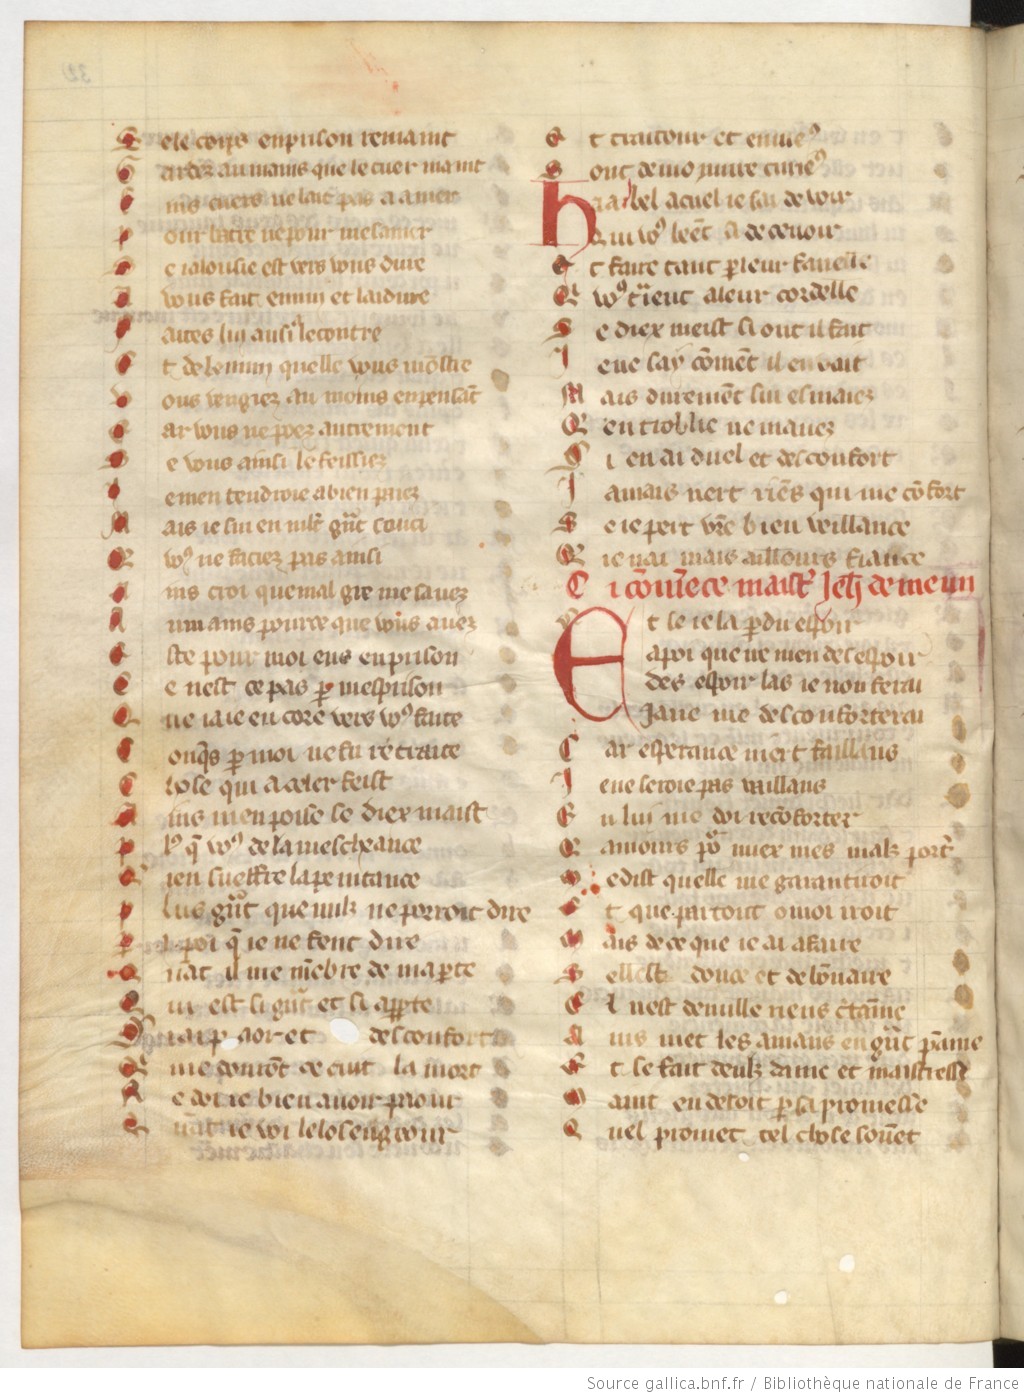 S e le cors en prison remaint
G ardez au mains que le cuer maint
E ins cuers ne lait pas a amer
p our batre ne pour mesamer
S e ialousie est vers vous dure
A vous fait ennui et laidure
F aites lui ausi lecontre
E t de lennui quelle vous mōstre
v ous vengiez au moins en pensāt
Q ar vous ne poez autrement
S e vous ainsi le feissiez
I e men tendroie a bien paiez
M ais ie sui en mlt gñt souci
Q vꝰ ne faciez pas ainsi
A ins croi que mal gre me sauez
A um ains pource que vous auez
E ste pour moi ens en prison
C e nest ce pas p mesprison
Q ue iaie encore vers vꝰ faite
C onq̄s p moi ne fu retraite
C hose qui a celer feist
A ins men poise se diex maist
p lꝰ q̄ vꝰ de la mescheance
Q ien sueffre la penitance
p lus gñt que nulz ne porroit dire
p a poi q̄ ie ne fent dire
Q nāt il me mēbre de ma perte
Q ui est si gñt et si apperte
S i ai paor et desconfort
Q me donrōt ce cuit la mort
N e doi ie bien auoir paour
Q nāt ie voi le losengeour
E t traitour et enuieꝰ
S ont de mo nuire curieꝰ
Ha bel acuel ie sai de voir
Qui vꝰ beēt a deceuoir
E t faire tant p leur fauelle
Q vꝰ t̄ient a leur cordelle
S e diex meist si ont il fait
I e ne say cōmēt il en vait
M ais duremēt sui esmaiez
Q en troblie ne mauez
S i en ai duel et desconfort
I amais niert riēs qui me cōfort
S e ie pert vr̄e bien veillance
Q ie nai mais aillours fiance
C i cōmēce maistr̄ Jeh̄ de meun
Et se ie la pdu espoir
A poi que ne men desespoir
Desespoir las ie non ferai
Ja ne me desconforterai
C ar esperance miert faillans
I e ne seroie pas vaillans
E n lui me doi recōforter
Q amours po^r mieux mes malz port̄
M e dist quelle me garantiroit
E t que par tout o moi iroit
M ais de ce que ie ai afaire
S ellest douce et debōnaire
E l nest de nulle riens c̄taīne
A ins met les amans en gñt paine
E t se fait deulz dame et maistresse
M aint en decoit p sa promesse
Q uel promet tel chose souuēt